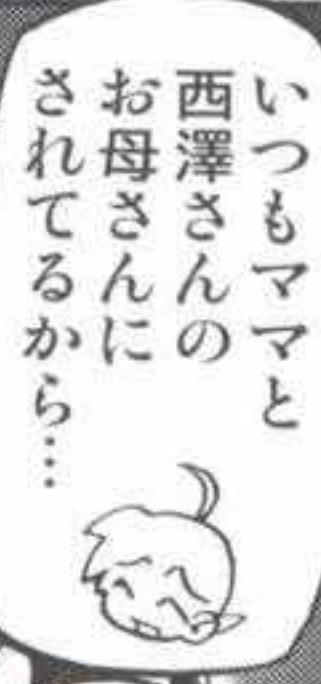 いつもママと
西澤さんの
お母さんに
されてるから…